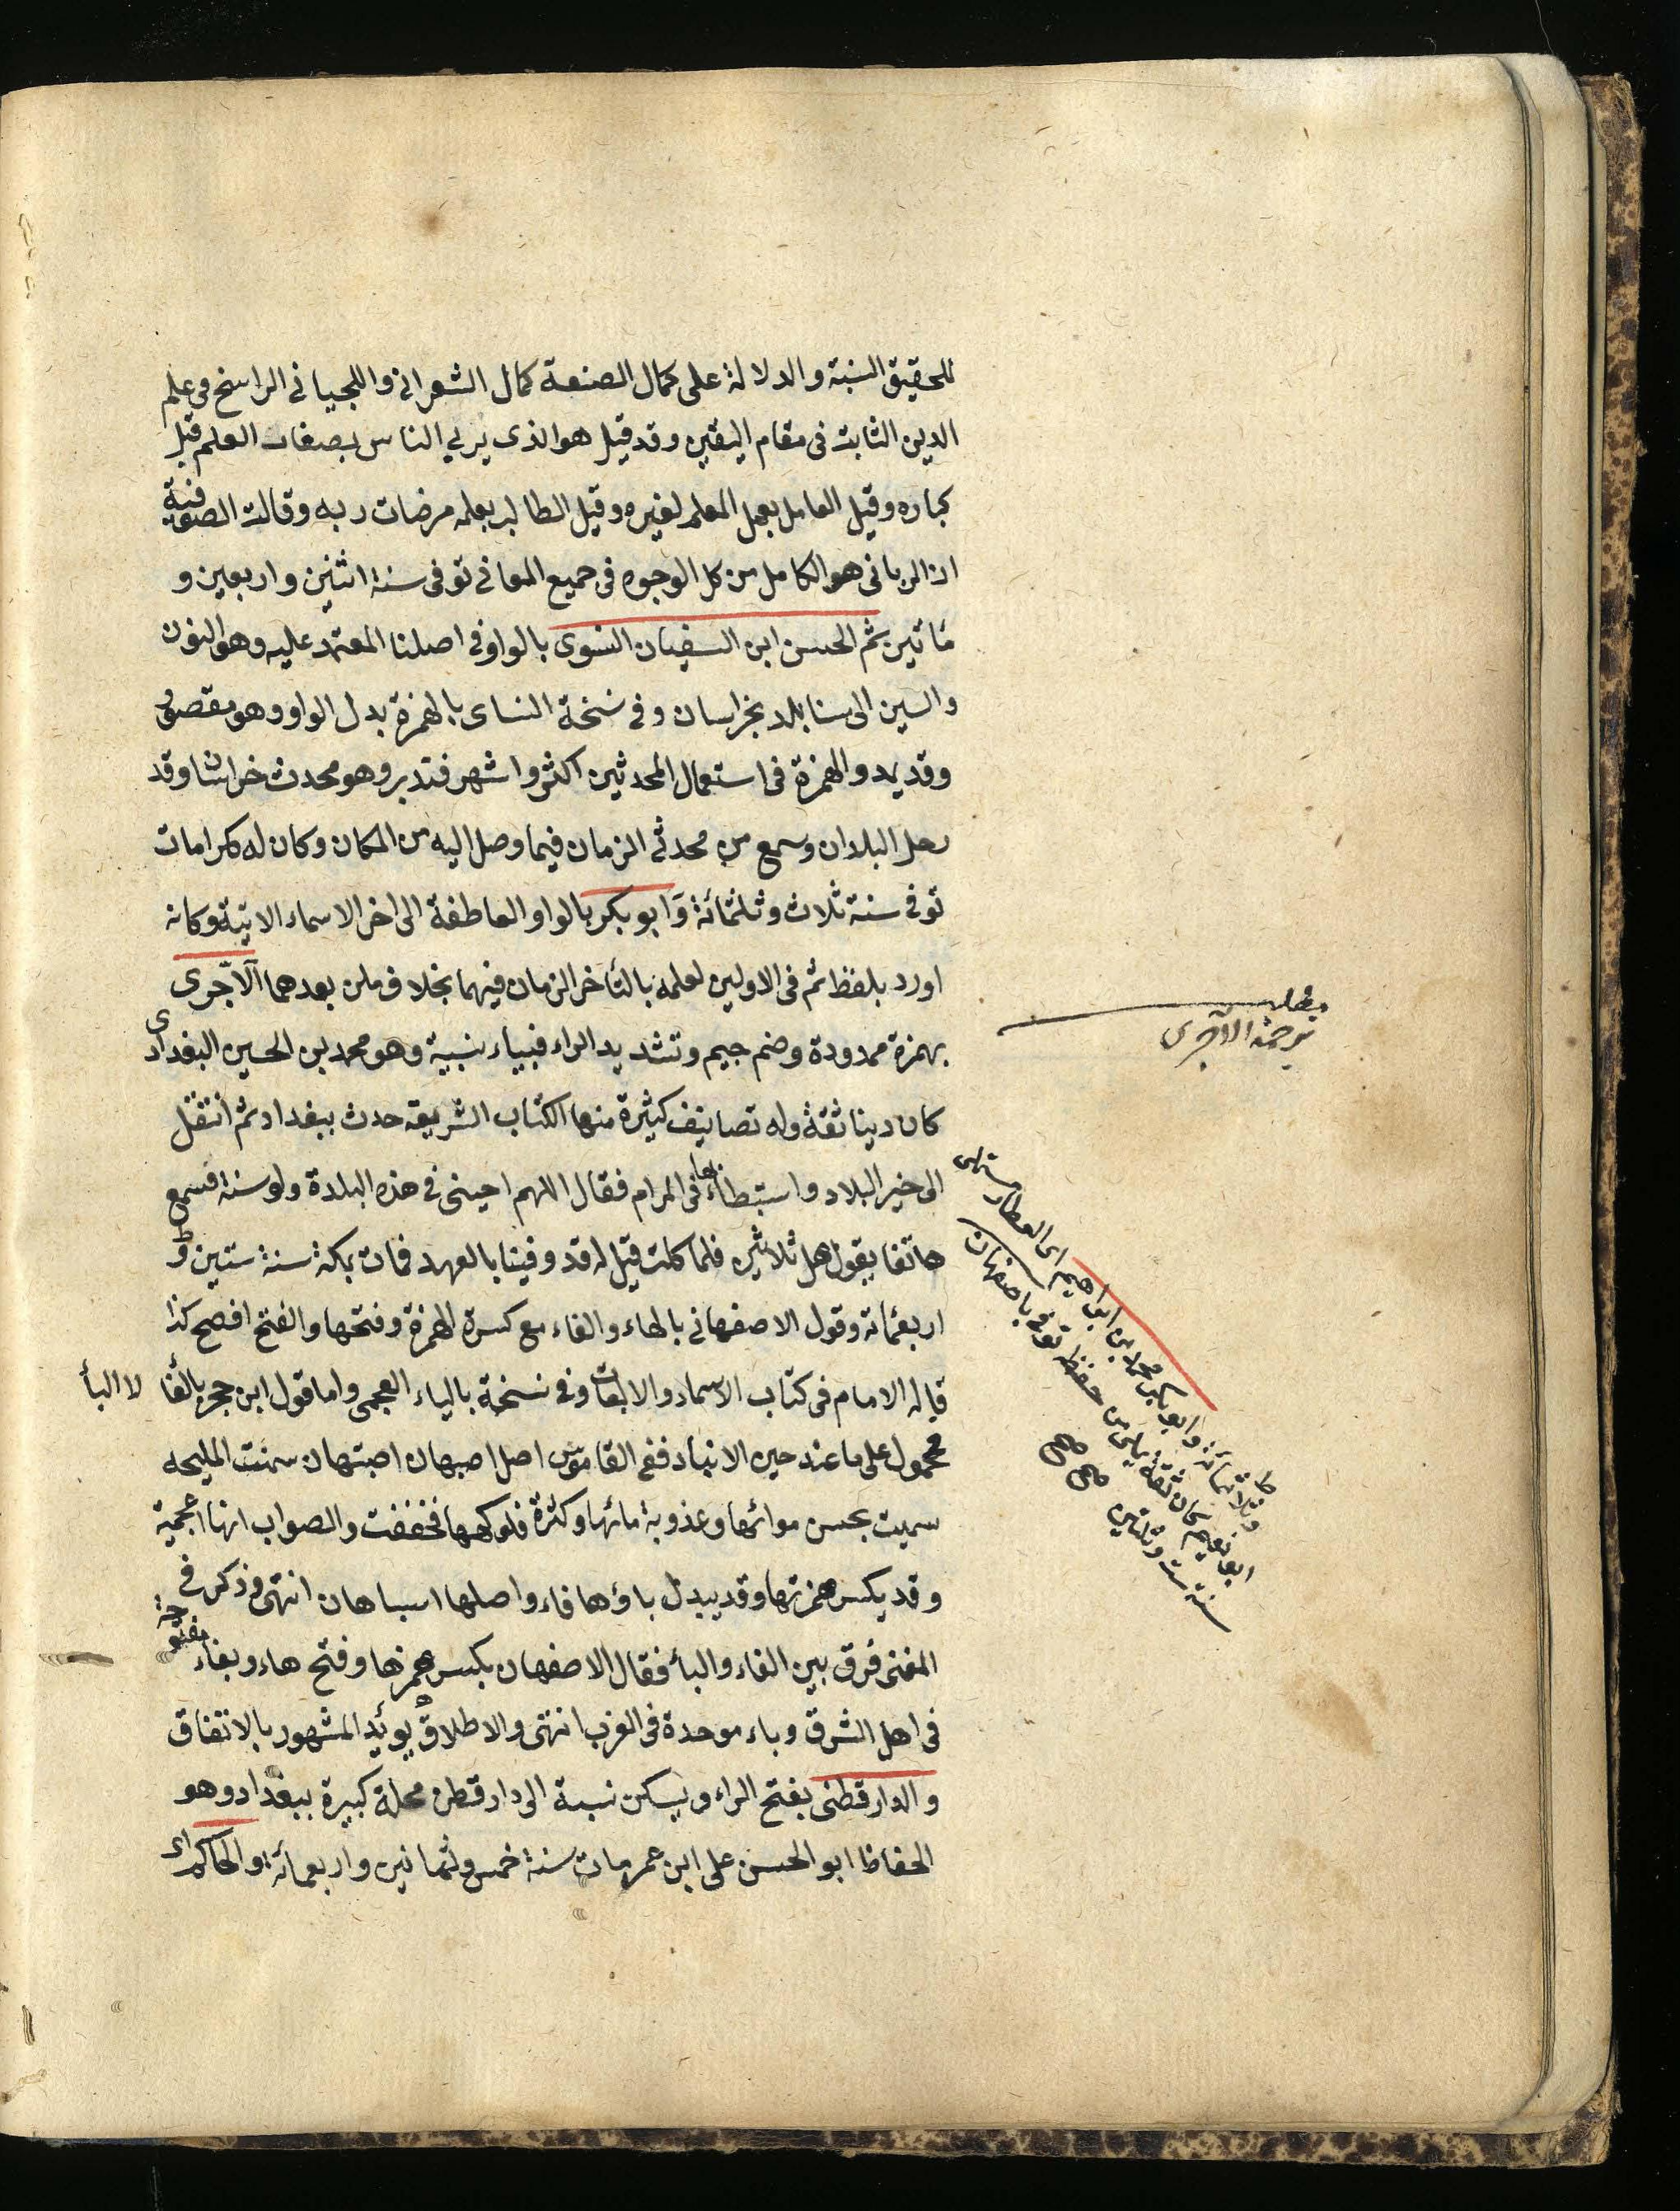 للحقيق النسبة والدلالة على كمال الصنعة كمال الشعراني واللحياني الراسخ في علم
الدين الثابت في مقام اليقين وقد قيل هو الذي يربي الناس بصغار العلم قبل
كباره وقيل العامل بعمل المعلم لغيره وقيل الطالب بعلمه مرضات ربه وقالت الصوفية
ان الرباني هو الكامل من كل الوجوه في جميع المعاني توفى سنة اثنين واربعين و
مأتين ثم الحسن ابن السفيان النسوى بالواو في اصلنا المعتمد عليه وهو النون
والسين الى نسا بلد بخراسان وفي نسخة النساى بالهمزة بدل الواو وهو مقصور
وقد يمد والهمزة في استعمال المحدثين اكثر واشهر فتدبر وهو محدث خراسان وقد
رحل البلدان وسمع من محدثي الزمان فيما وصل اليه من المكان وكان له كرامات
توفي سنة ثلاث وثلثمائة وَابو بكر بالواو العاطفة الى اخر الاسماء الاتية وكانه
اورد بلفظ ثم في الاولين لعلمه بالتأخر الزمان فيهما بخلاف من بعدهما الآجرى
بهمزة ممدودة وضم جيم وتشديد الراء فبياء نسبية وهو محمد بن الحسين البغدادى
كان دينا ثقة وله تصانيف كثيرة منها الكتاب الشريعة حدث ببغداد ثم انتقل
الى خير البلاد واستبطأها في المرام فقال اللهم احيني في هذه البلدة ولو سنة فسمع
هاتفا يقول هل ثلاثين فلما كملت قيل له قد وفينا بالعهد فمات بمكة سنة ستين و
اربعمائة وقول الاصفهاني بالهاء والفاء مع كسرة الهمزة وفتحها والفتح افصح كذا
قاله الامام في كتاب الاسماء والالقاب وفي نسخة بالياء العجمى واما قول ابن حجر بالفا لا البأ
محمول على ما عنده حين الانباء ففي القاموس اصل اصبهان اصبتهان سمنت المليحة
سميت بحسن هوائها وعذوبة مائها وكثرة فلوكهها فخففت والصواب انها اعجمية
وقد يكسر همزتها وقد يبدل باؤها فاء واصلها اسباهان انتهى وذكر في
المغنى فرق بين الفاء والبأ فقال الاصفهان بكسر همزها وفتح هاء وبفاء مفتوحة
في اهل الشرق وباء موحدة في الغرب انتهى والاطلاق يؤيد المشهور بالاتفاق
والدارقطنى بفتح الراء ويسكن نسبة الى دارقطن محلة كبيرة ببغداد وهو
الحفاظ ابو الحسن على ابن عمر مات سنة خمس وثمانين واربعمائة والحاكم اى
مطلب
ترجمة الآجرى
وثلاثمائة وابو بكر محمد بن ابراهيم اى العطار مستملى
ابو نعيم كان ثقة حفظ توفى باصفهان
سنة ست وثلثين صح صح